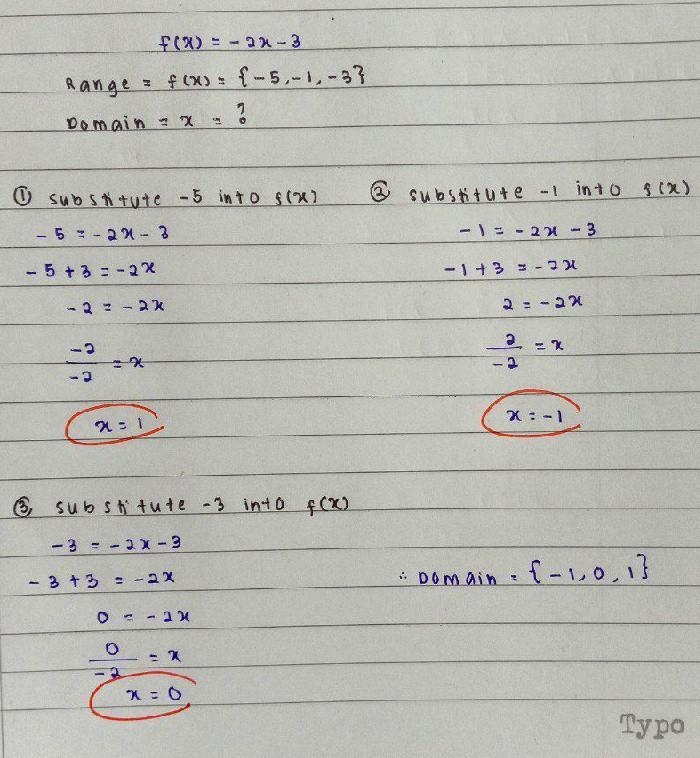 f(x) = -2x - 3
Range = f(x) = {-5, -1, -3}
Domain = x = ?
① substitute -5 into f(x)
-5 = -2x - 3
-5 + 3 = -2x
-2 = -2x
-2/-2 = x
x = 1
② substitute -1 into f(x)
-1 = -2x - 3
-1 + 3 = -2x
2 = -2x
2/-2 = x
x = -1
③ substitute -3 into f(x)
-3 = -2x - 3
-3 + 3 = -2x
0 = -2x
0/-2 = x
x = 0
∴ Domain = {-1, 0, 1}
Typo